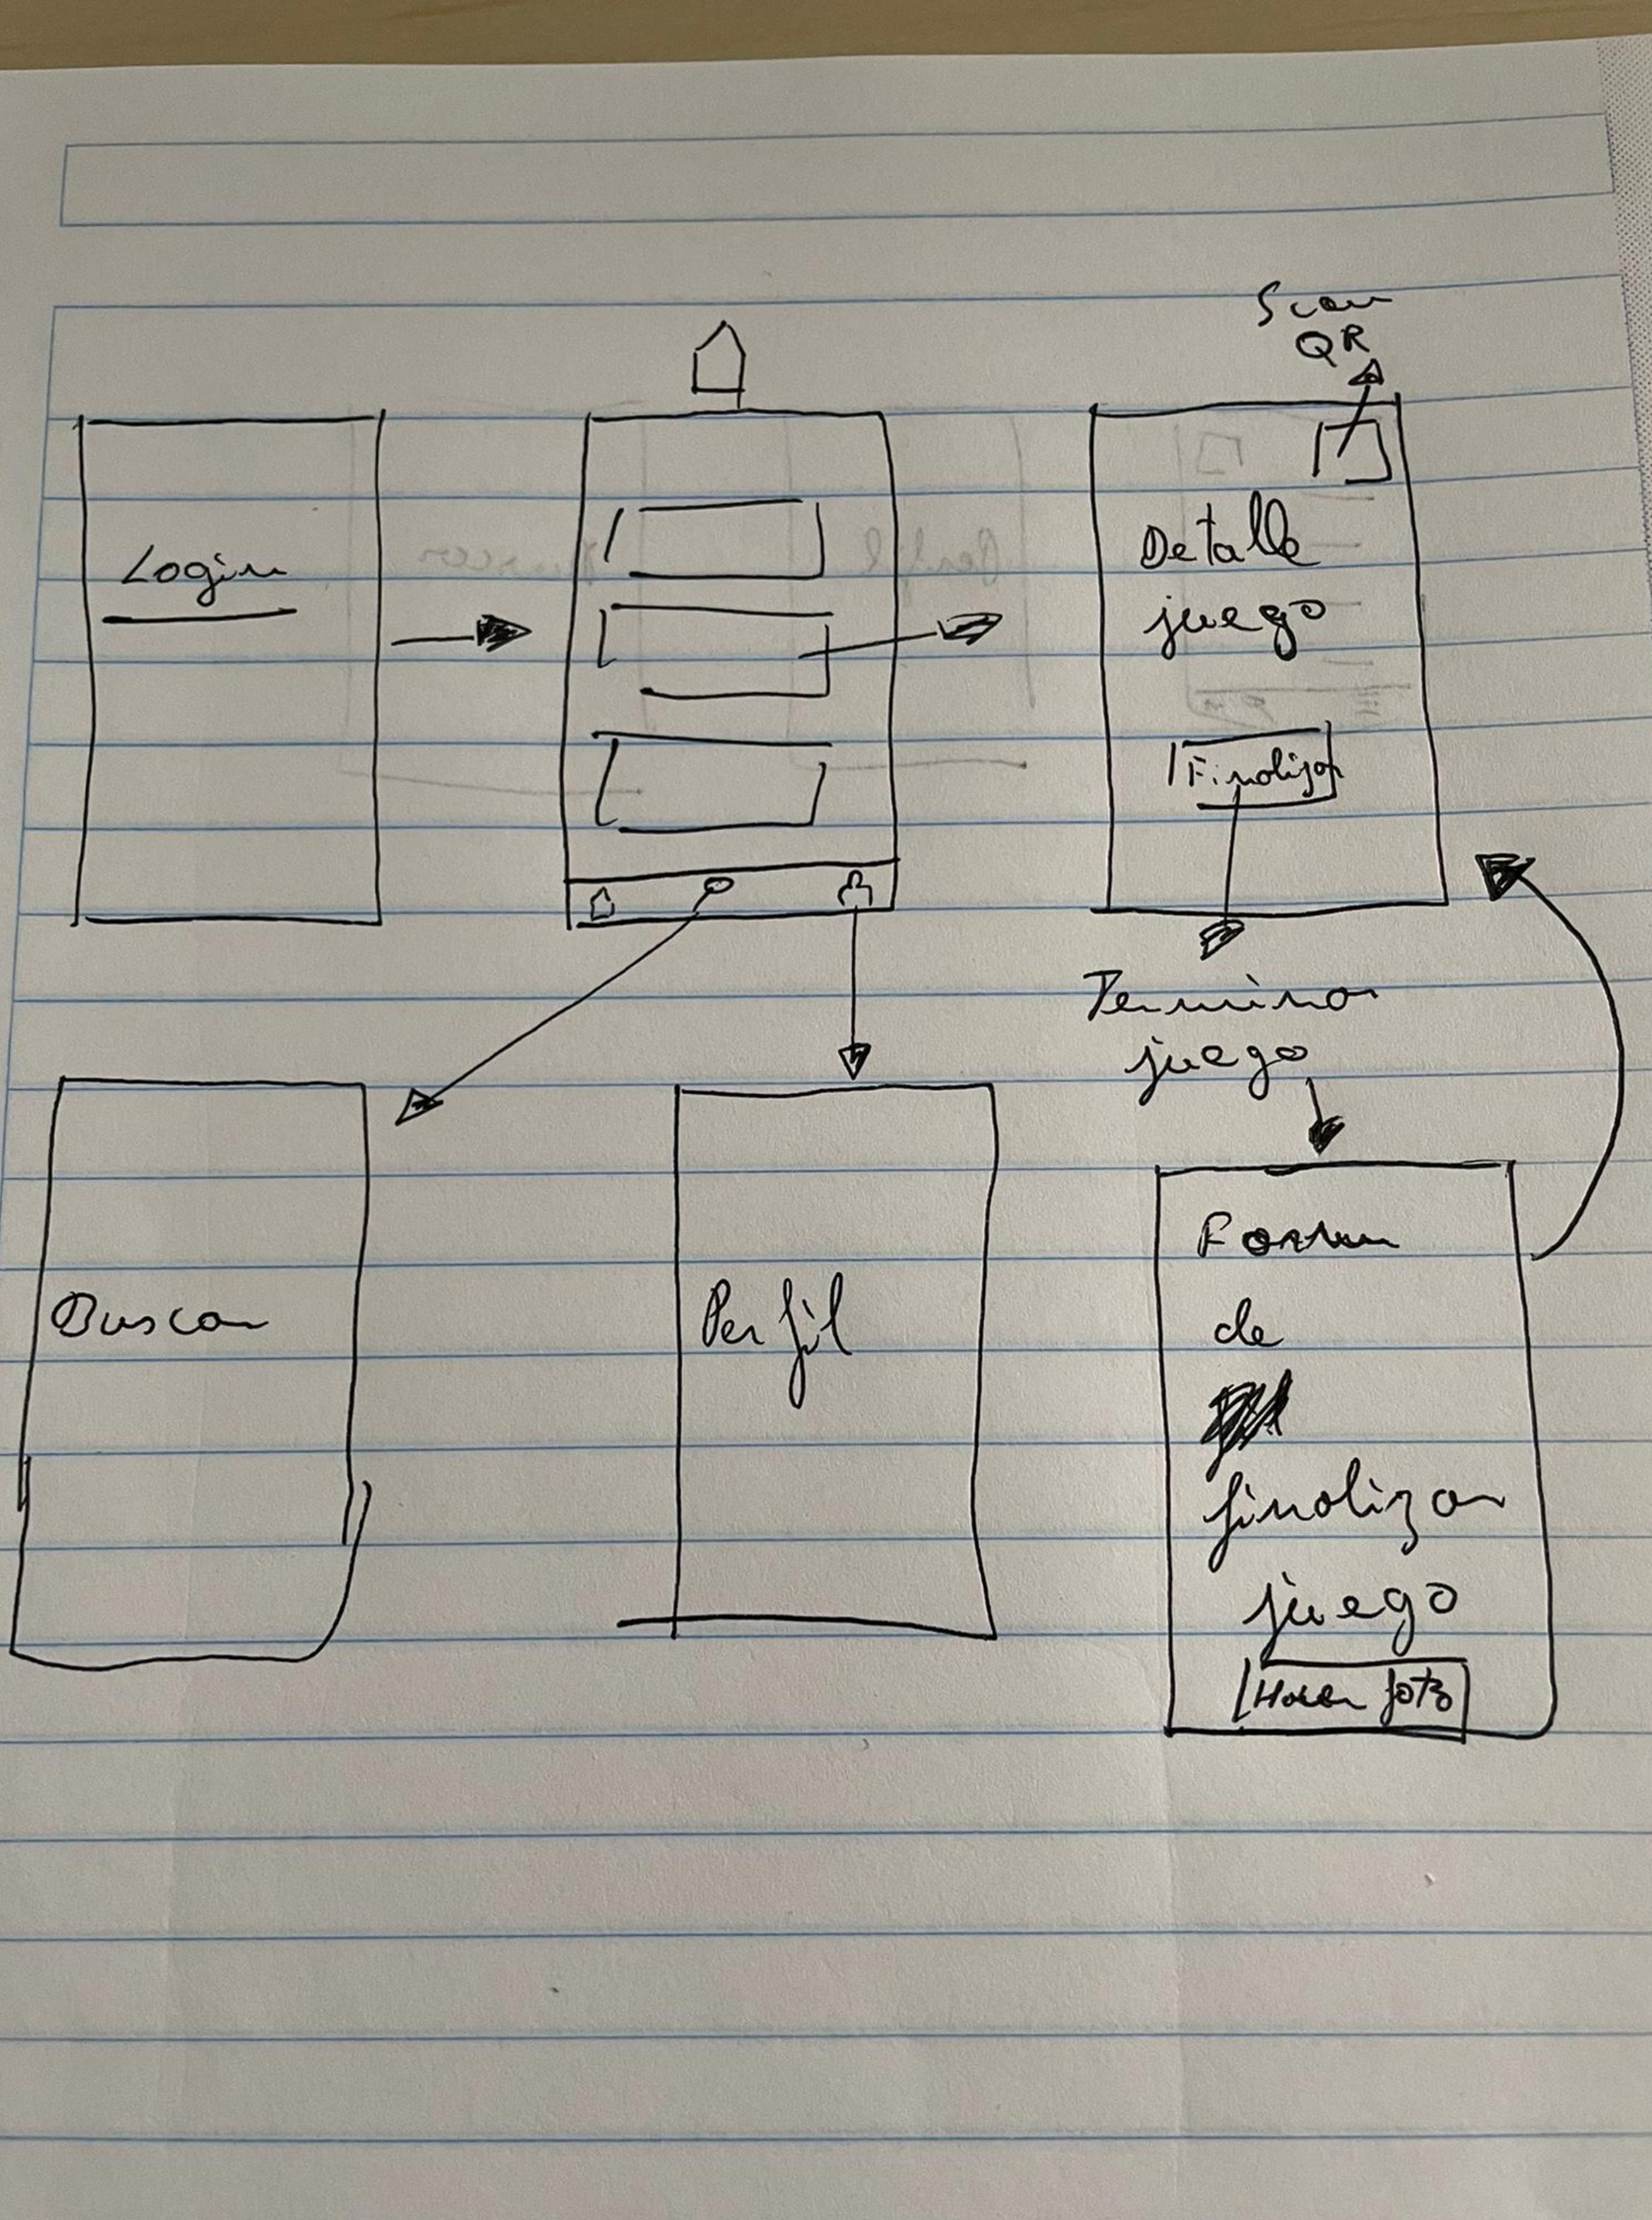 Scan
QR
Login
Detalle
juego
Finalizar
Terminar
juego
Buscar
Perfil
Form
de
finalizar
juego
Hacer foto